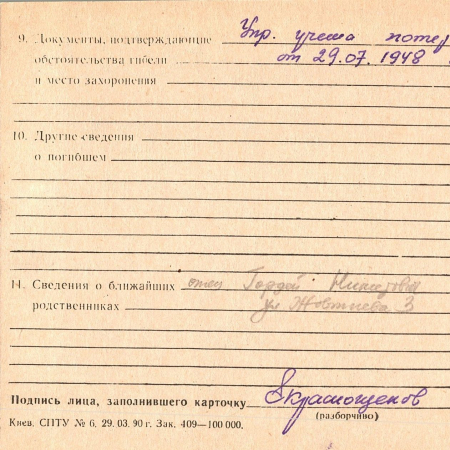 9. Документы, подтверждающие Упр. учета потер
обстоятельства гибели от 29.07.1948
и место захоронения
10. Другие сведения
о погибшем
11. Сведения о ближайших отец Гордей
родственниках ул Жовтнева 3
Подпись лица, заполнившего карточку
(разборчиво)
Киев. СПТУ № 6, 29. 03. 90 г. Зак. 409—100 000.